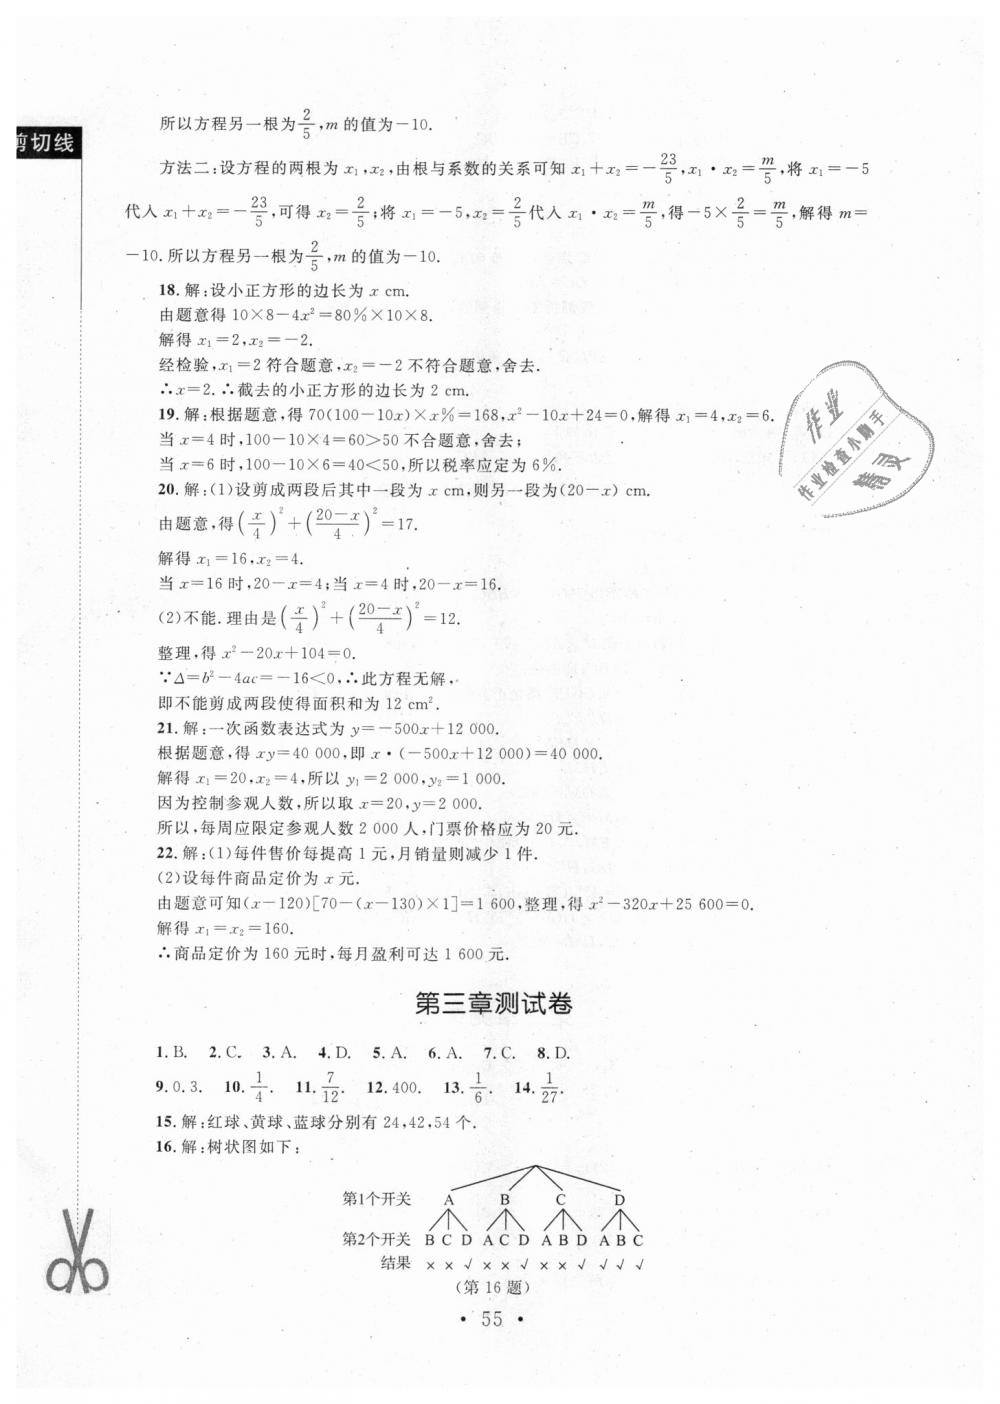 剪切线
所以方程另一根为2/5,m的值为-10.
方法二:设方程的两根为x₁,x₂,由根与系数的关系可知x₁+x₂=-23/5,x₁·x₂=m/5,将x₁=-5
代入x₁+x₂=-23/5,可得x₂=2/5;将x₁=-5,x₂=2/5代入x₁·x₂=m/5,得-5×2/5=m/5,解得m=
-10.所以方程另一根为2/5,m的值为-10.
18.解:设小正方形的边长为x cm.
由题意得10×8-4x²=80%×10×8.
解得x₁=2,x₂=-2.
经检验,x₁=2符合题意,x₂=-2不符合题意,舍去.
∴x=2.∴截去的小正方形的边长为2 cm.
19.解:根据题意,得70(100-10x)×x%=168,x²-10x+24=0,解得x₁=4,x₂=6.
当x=4时,100-10×4=60>50不合题意,舍去;
当x=6时,100-10×6=40<50,所以税率应定为6%.
20.解:(1)设剪成两段后其中一段为x cm,则另一段为(20-x) cm.
由题意,得(x/4)²+((20-x)/4)²=17.
解得x₁=16,x₂=4.
当x=16时,20-x=4;当x=4时,20-x=16.
(2)不能.理由是(x/4)²+((20-x)/4)²=12.
整理,得x²-20x+104=0.
∵Δ=b²-4ac=-16<0,∴此方程无解,
即不能剪成两段使得面积和为12 cm².
21.解:一次函数表达式为y=-500x+12 000.
根据题意,得xy=40 000,即x·(-500x+12 000)=40 000.
解得x₁=20,x₂=4,所以y₁=2 000,y₂=1 000.
因为控制参观人数,所以取x=20,y=2 000.
所以,每周应限定参观人数2 000人,门票价格应为20元.
22.解:(1)每件售价每提高1元,月销量则减少1件.
(2)设每件商品定价为x元.
由题意可知(x-120)[70-(x-130)×1]=1 600,整理,得x²-320x+25 600=0.
解得x₁=x₂=160.
∴商品定价为160元时,每月盈利可达1 600元.
作业
作业检查小助手
精灵
第三章测试卷
1.B. 2.C. 3.A. 4.D. 5.A. 6.A. 7.C. 8.D.
9.0.3. 10.1/4. 11.7/12. 12.400. 13.1/6. 14.1/27.
15.解:红球、黄球、蓝球分别有24,42,54个.
16.解:树状图如下:
第1个开关 A B C D
第2个开关 B C D A C D A B D A B C
结果 × × √ × × √ × × √ √ √ √
(第16题)
· 55 ·